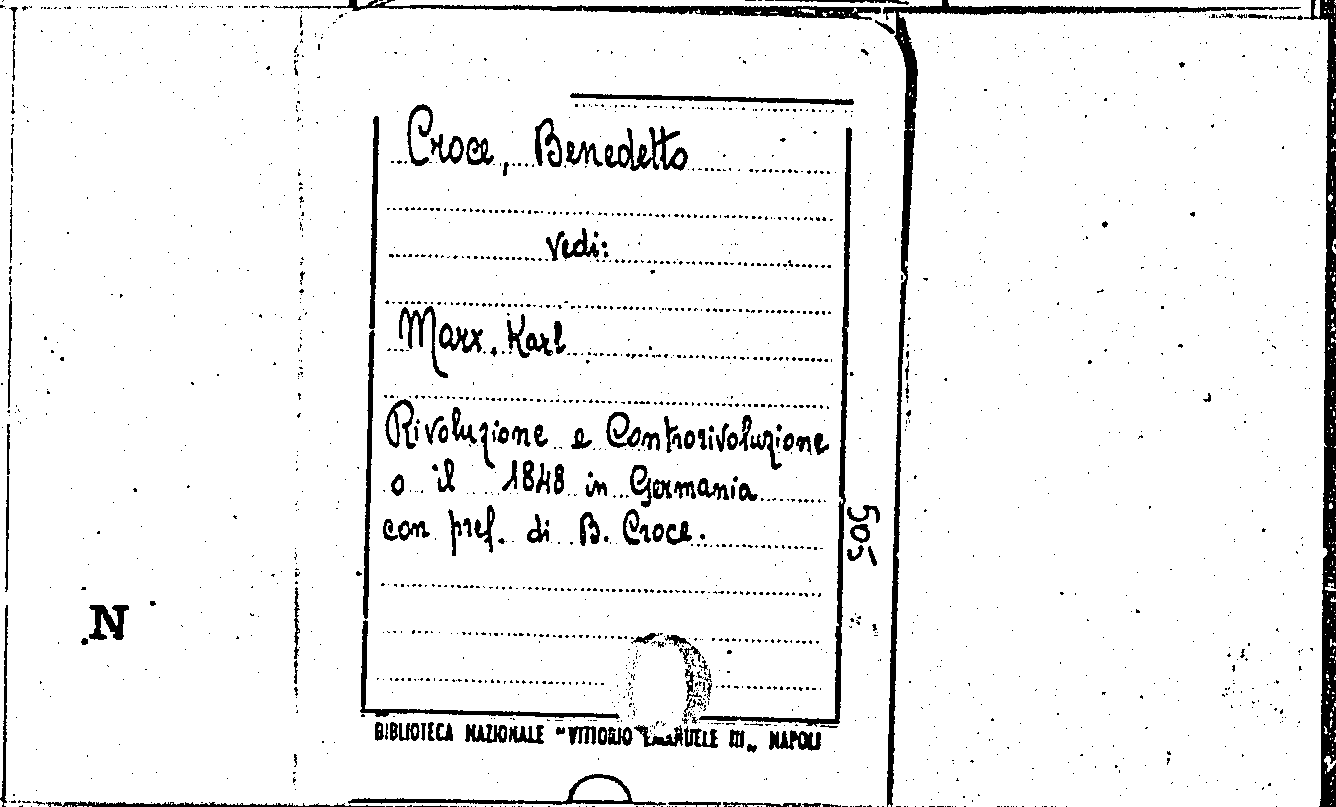 Croce, Benedetto
vedi:
Marx, Karl
Rivoluzione e Controrivoluzione
o il 1848 in Germania
con pref. di B. Croce.
505
N
BIBLIOTECA NAZIONALE "VITTORIO EMANUELE III„ NAPOLI